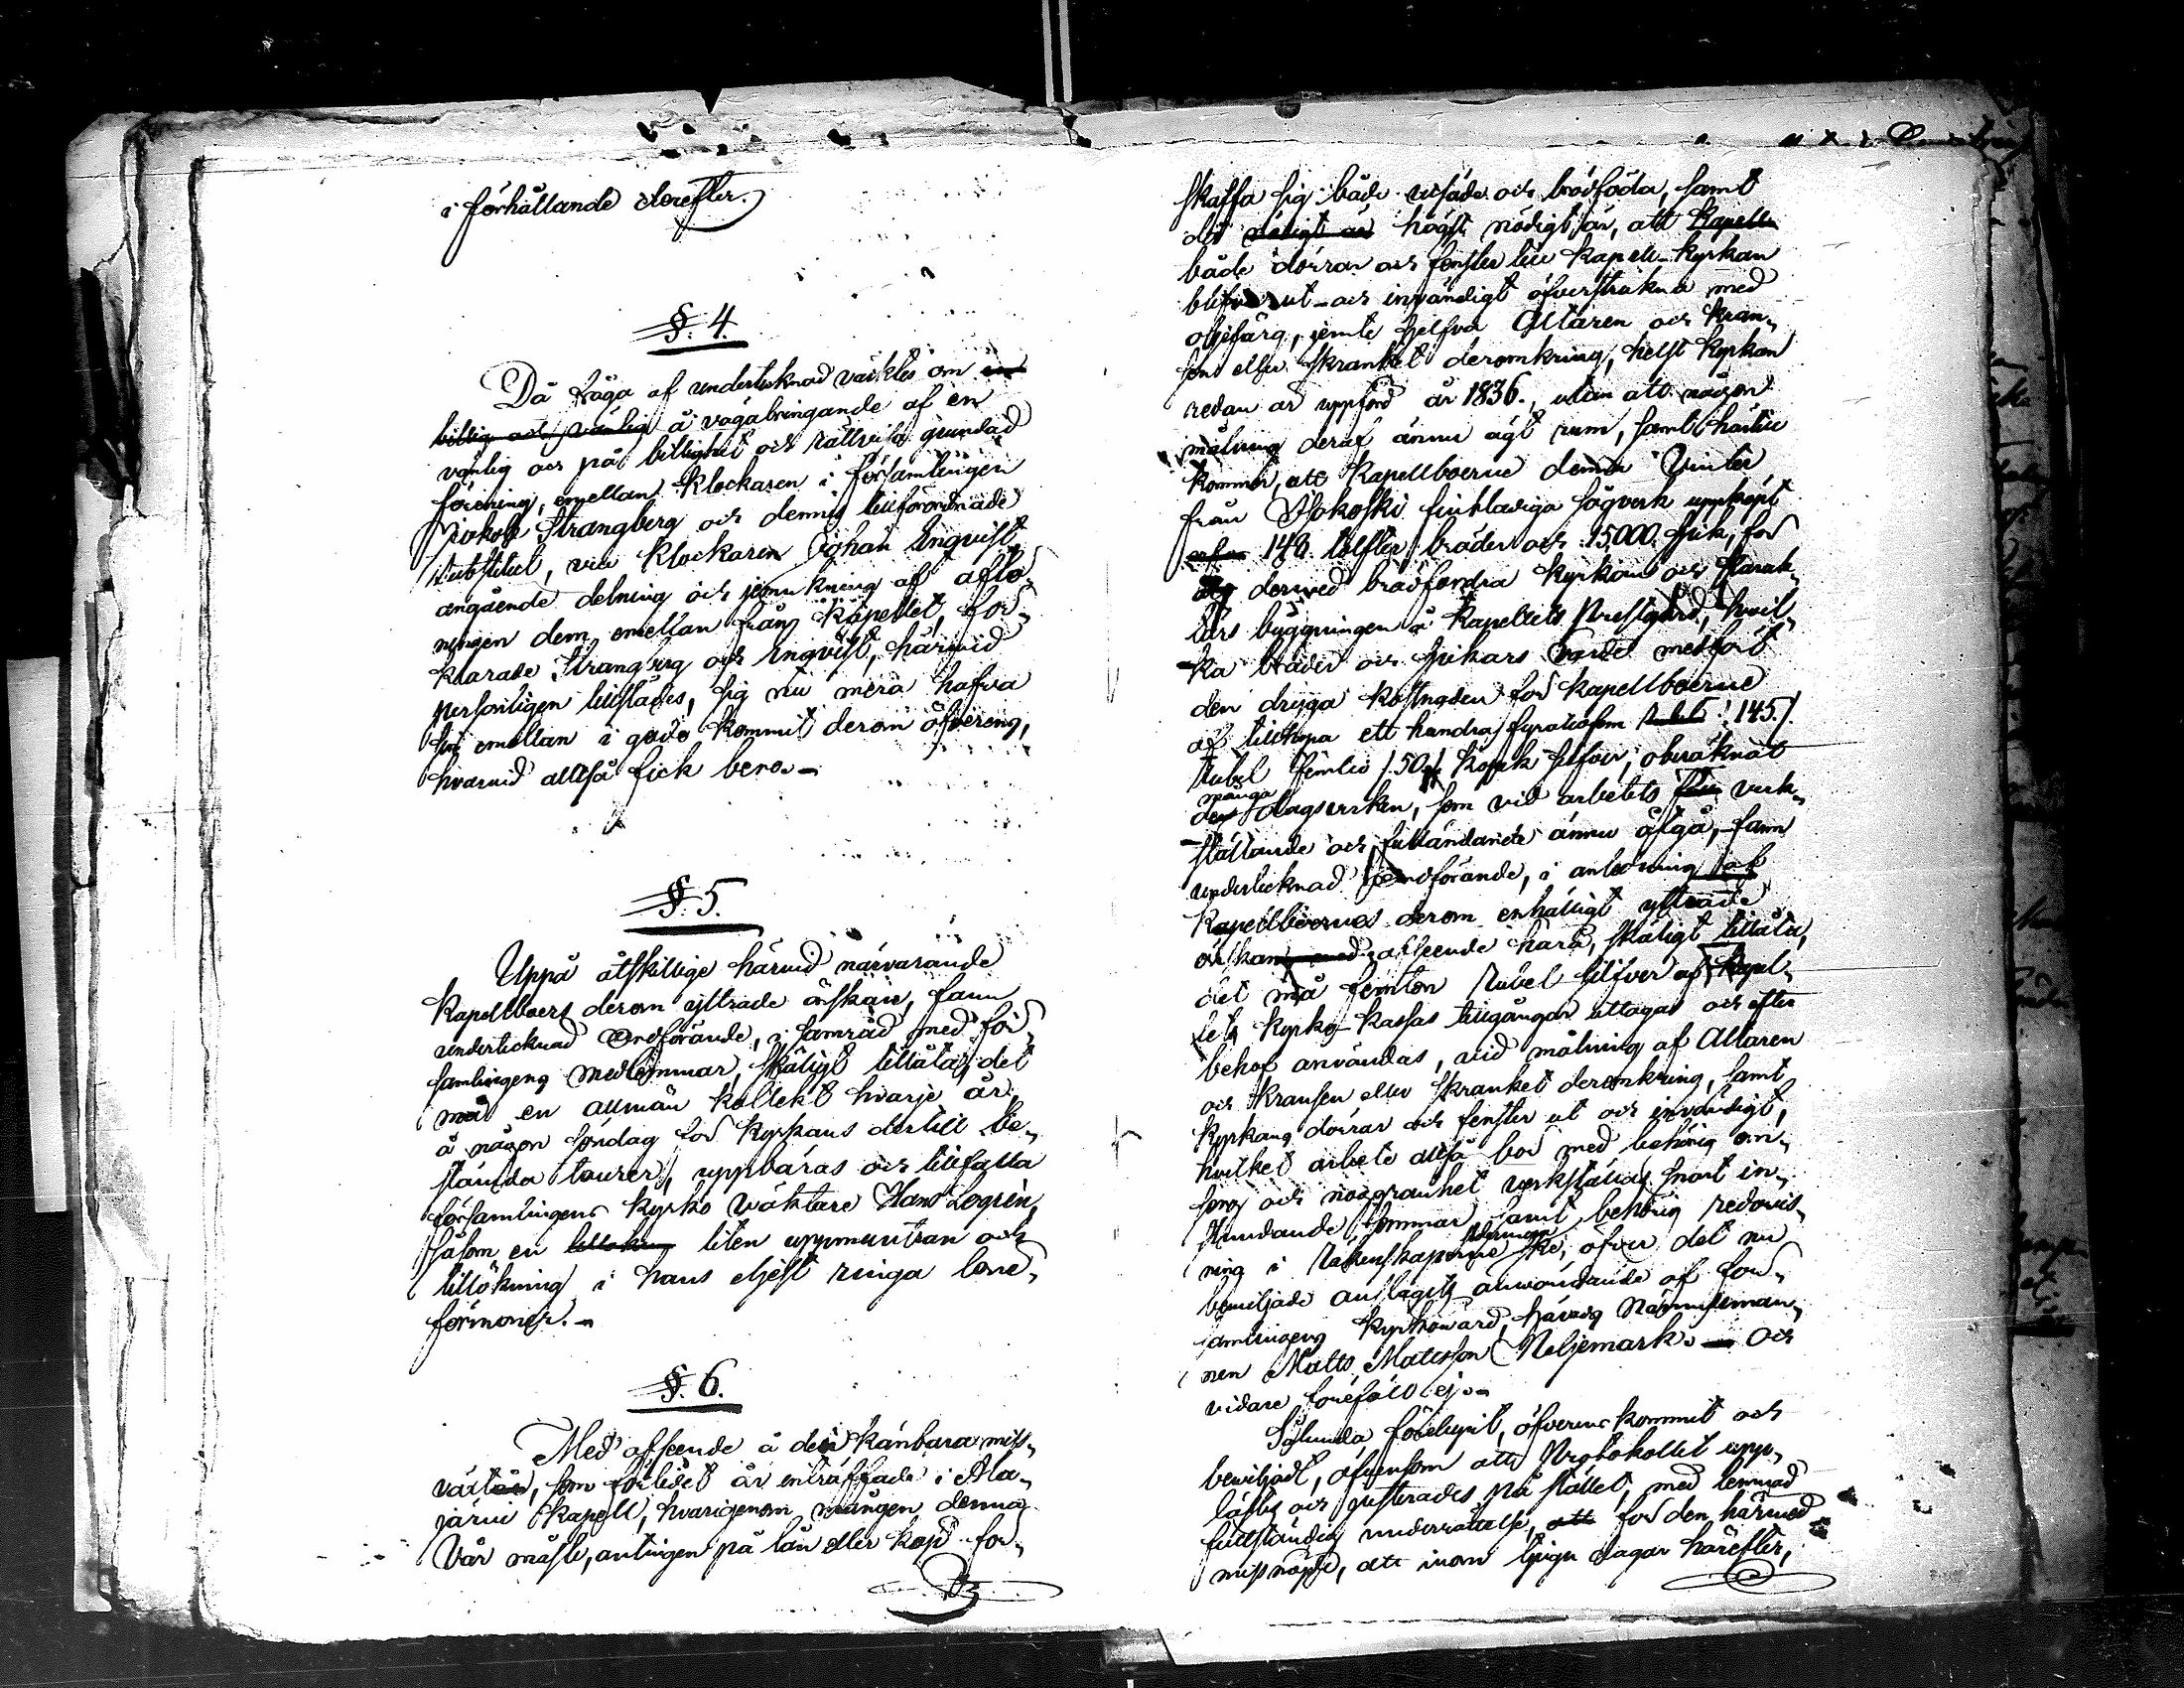 i förhållande derefter.
§. 4.
Då fråga af undertecknad väcktes om en
billig och vänlig å vägabringande af en
vänlig och på billighet och rättvisa grundad
förening, emellan Klockaren i församlingen
Jakob Strangberg och dennes tillförordnade
Substitut, vice Klockaren Johan Engvist,
angående delning och jemnkning af aflö-
ningen dem emellan från Kapellet, för-
klarade Strangberg och Engvist, härvid
personligen tillstädes, sig nu mera hafva
sin emellan i godo kommit derom öfverens,
hvarvid alltså fick bero.-
§. 5.
Uppå åtskillige härvid närvarande
Kapellboers derom yttrade önskan, fann
undertecknad Ordförande, i samråd med för-
samlingens medlemmar, skäligt tillåta, det
må en allmän kollekt hvarje år,
å någon söndag för Kyrkans dertill be-
stämda tourer, uppbäras och tillfalla
församlingens Kyrko väktare Hans Logrén,
såsom en tillökning liten uppmuntran och
tillökning i hans eljest ringa löne-
förmoner.-
§. 6.
Med afseende å den känbara miss-
växten, som förledet år inträffade i Ala-
järvi Kapell, hvarigenom mången denna
Vår måste, antingen på lån eller köp för-
skaffa sig både utsäde och brödföda, samt
det nödigt är högst nödigt är, att Kapells
både dörrar och fenster till Kapell-Kyrkan
blifva ut- och invändigt öfverstrukna med
oljefärg, jemte sjelfva Altaren och kran-
sen eller skranket deromkring, helst kyrkan
redan är uppförd år 1836., utan att någon
målning deraf ännu ägt rum, samt härtill
kommer, att Kapellboerne denna Vinter
från Isokoski finbladiga sågverk uppköpt
149 tolfter bräder och 15,000 spik, för
att dermed brädfordra Kyrkan och Karak-
tärs byggningen å Kapellets Prestgård, hvil-
ka bräder och spikars värde medfört
den dryga kostnaden för Kapellboerne
af tillhopa ett hundra fyratiofem Rubel /:145:/
Rubel femtio /:50:/ Kopek silfver, oberäknadt
många
de dagsverken, som vid arbetets verk-
ställande och fulländande ännu åtgå, fann
undertecknad Ordförande, i anledning af
Kapellboernes derom enhälligt yttrade
önskan, med afseende härå, skäligt tillåta,
det må femton Rubel silfver af Kapel-
lets Kyrko-kassas tillgångar uttagas och efter
behof användas, vid målning af Altaren
och kransen eller skranket deromkring, samt
Kyrkans dörrar och fenster ut och invändigt,
hvilket arbete altså bör med behörig om-
sorg och noggranhet verkställas snart in-
stundande sommar, samt behörig redovis-
ning i Räkenskaperne ske, öfver det nu
beviljade anslagets användande af för-
samlingens Kyrkovärd, härads Nämndeman-
nen Matts Mattsson Neljemark. - Och
vidare föreföll ej.-
Sålunda förelupit, öfverenskommit och
beviljadt, äfvensom att Protokollet upp-
lästes och justerades på stället, med lemnad
fullständig underrättelse, att för den härmed
missnöjde, att inom tjugu dagar härefter,